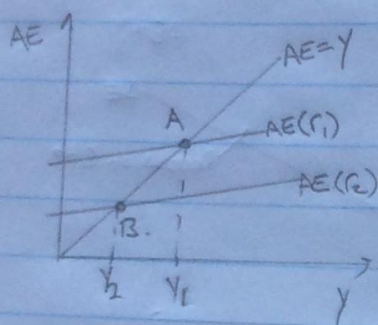 AE
AE=Y
A
AE(r₁)
AE(r₂)
B.
Y₂
Y₁
Y